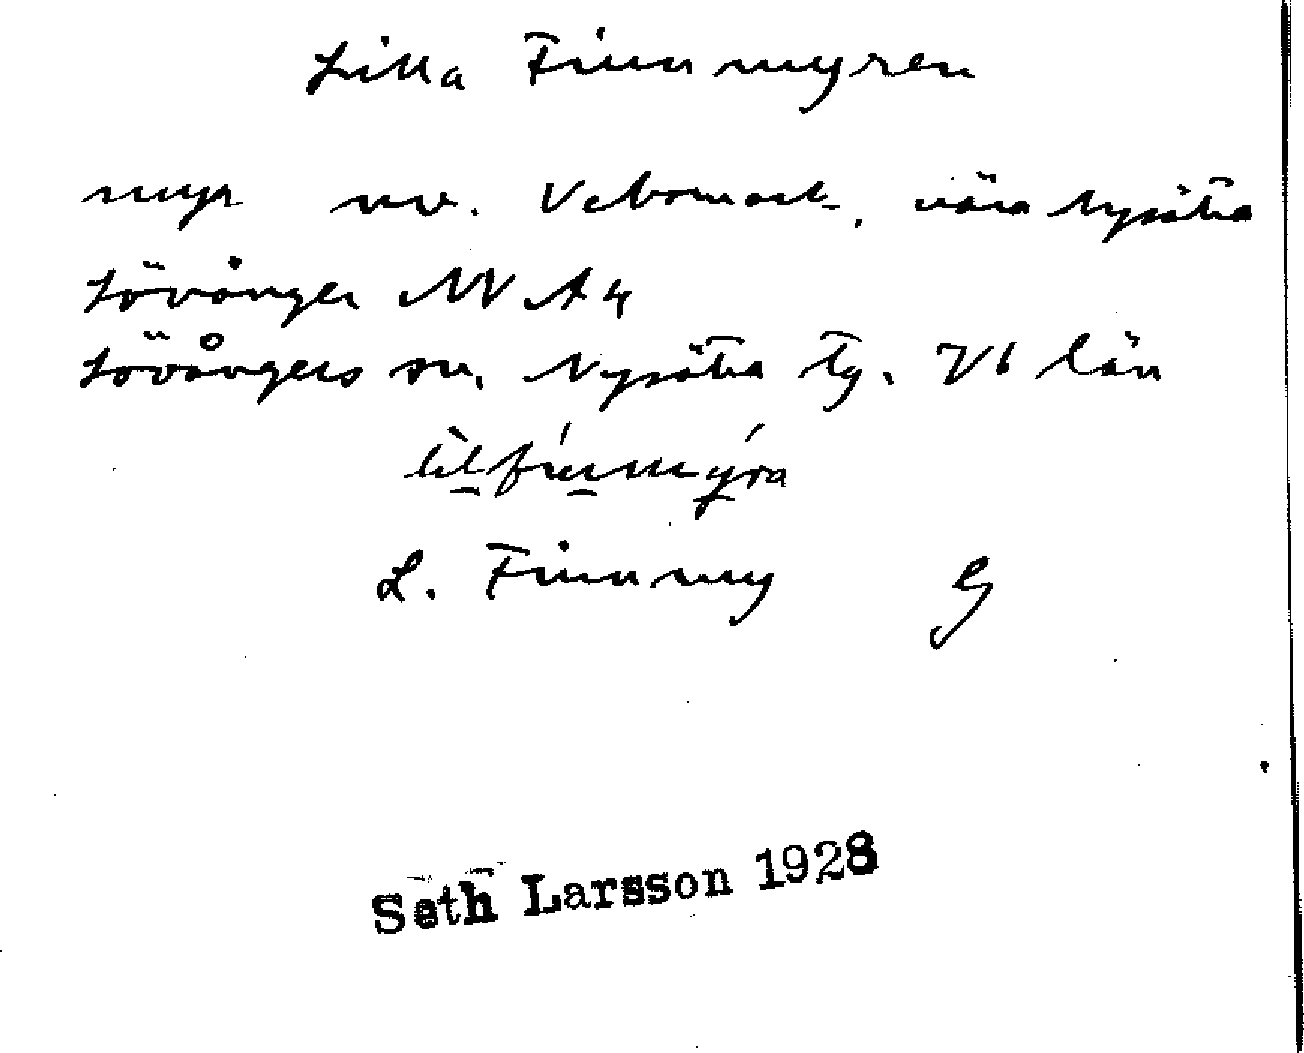 Lilla Finnmyren
myr nv. Vebomark, nära Nysätra
Lövånger NV A4
Lövångers sn, Nysätra tg. Vb län
lìlfínmýra
L. Finnmyr G
Seth Larsson 1928